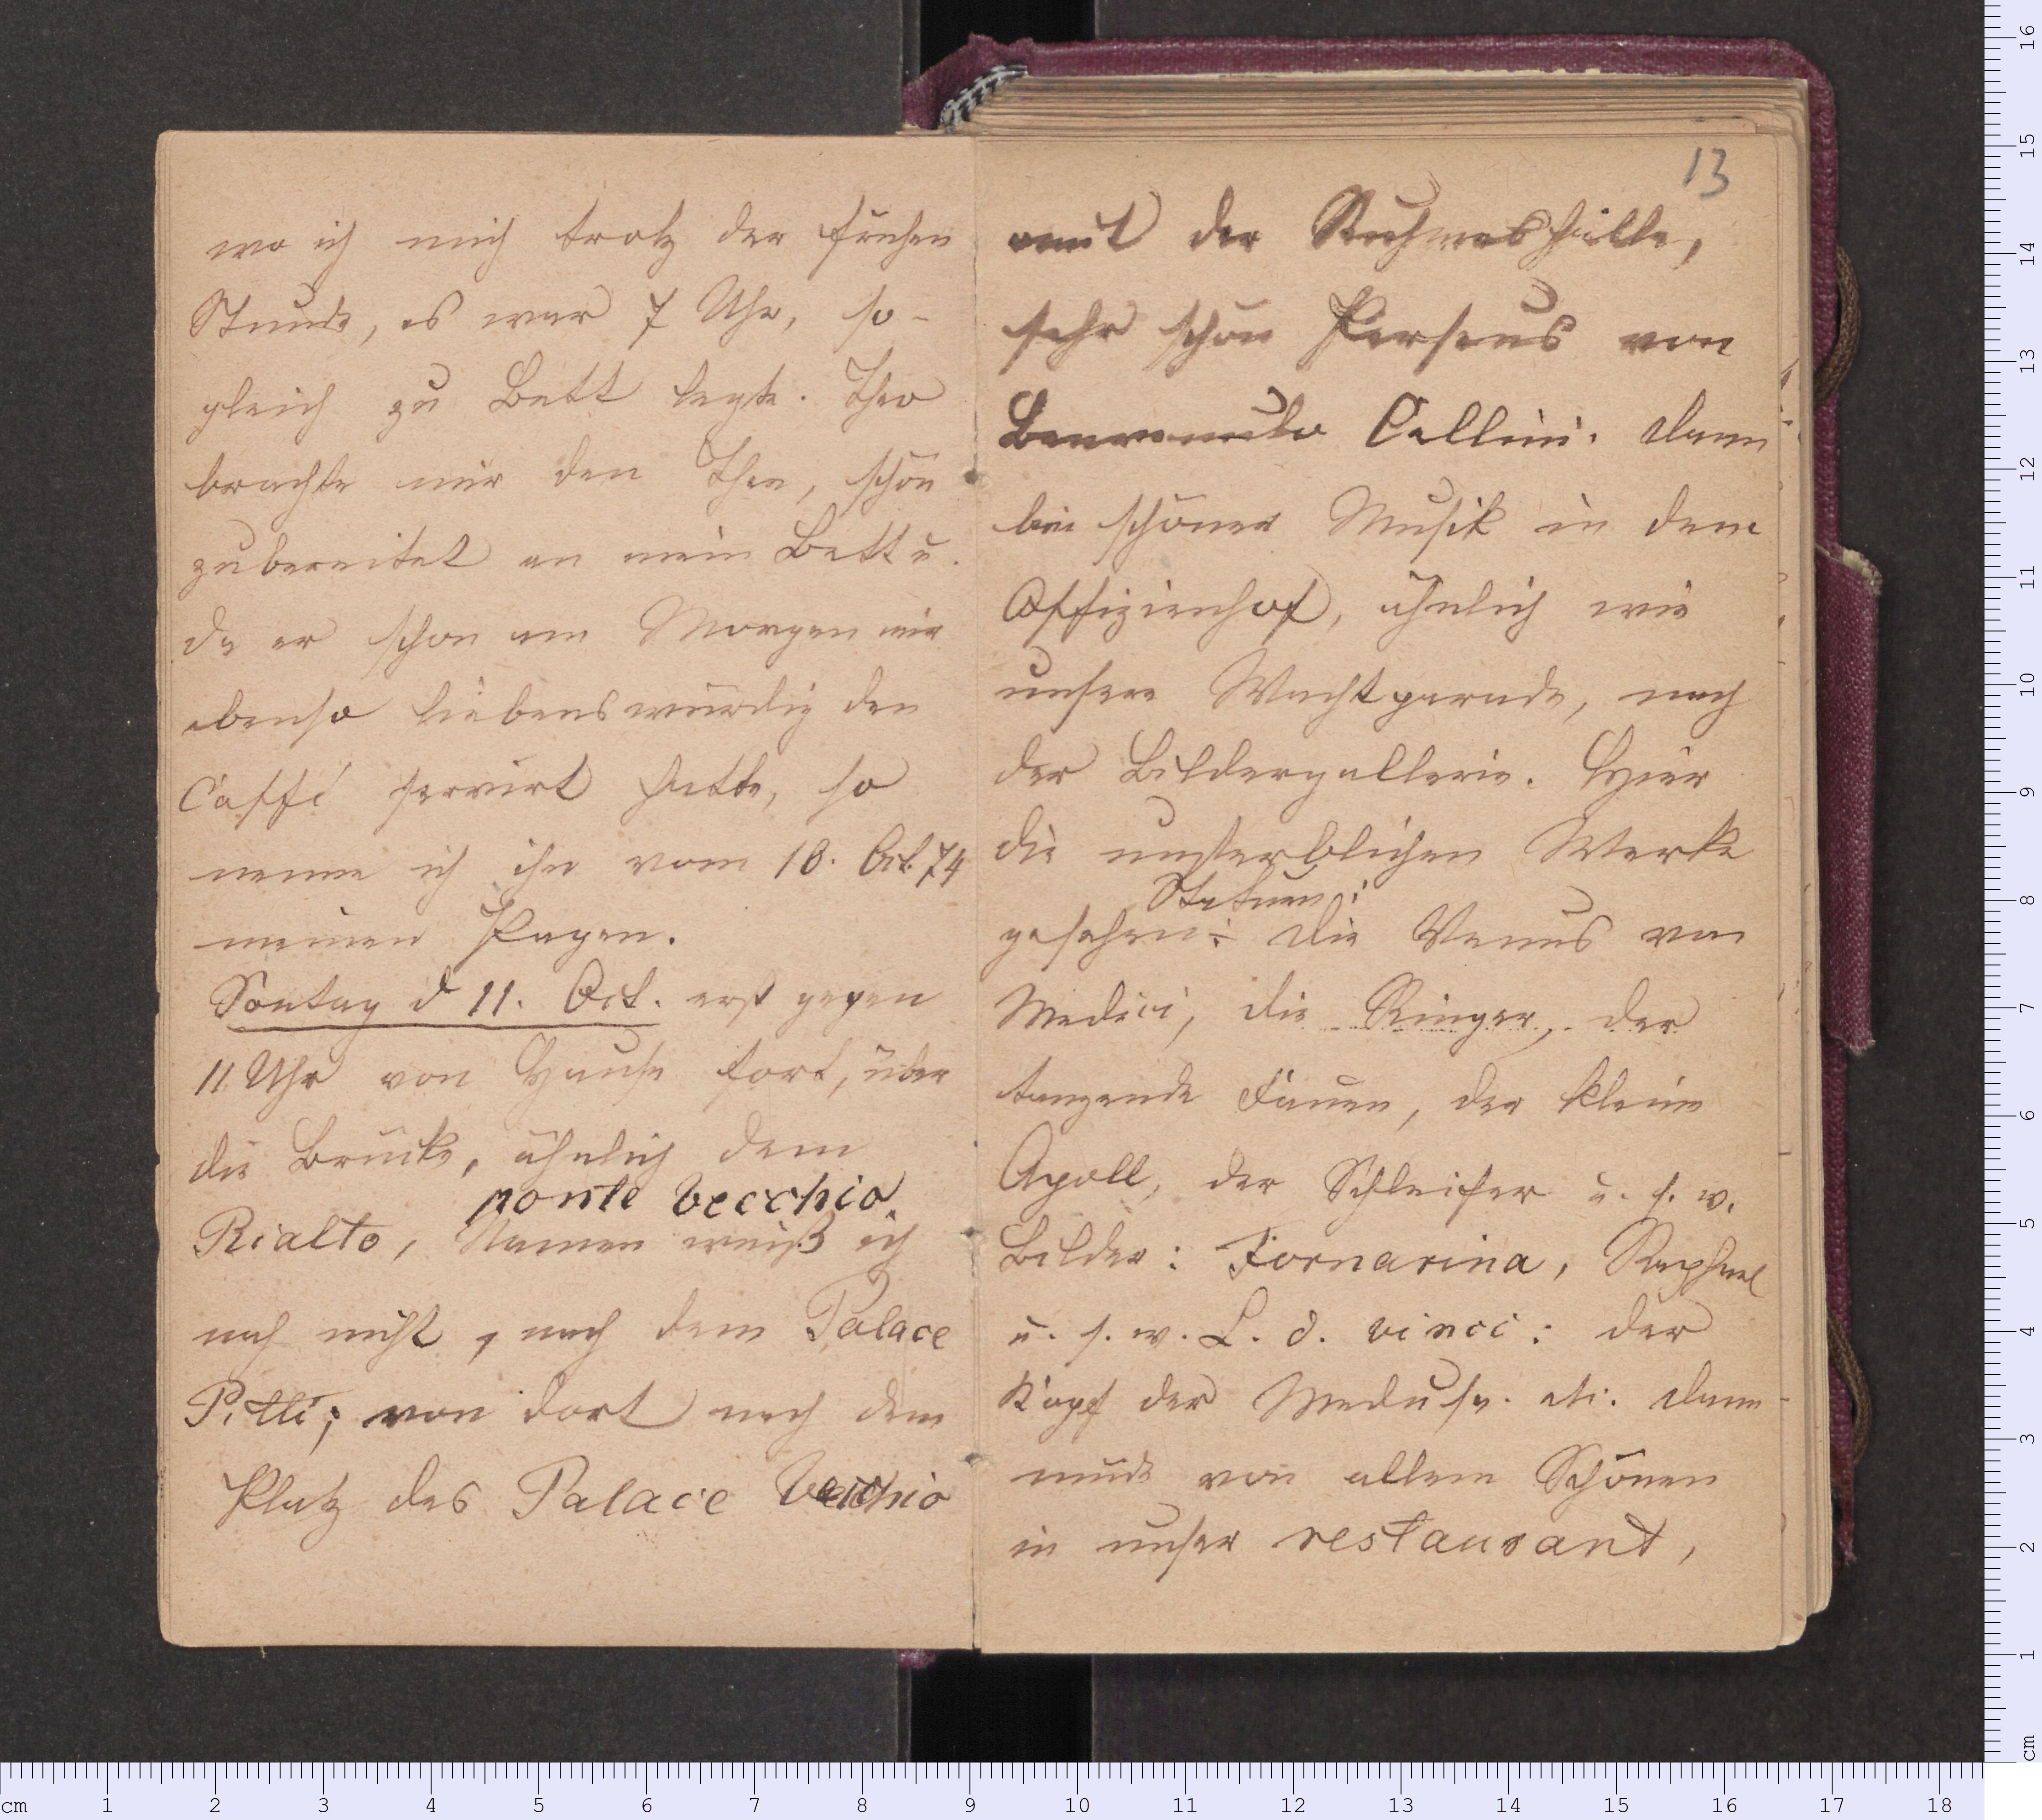 wo ich mich trotz der frühen
Stunde, es war 7 Uhr, so-
gleich zu Bett legte. Theo
brachte mir den Thee, schön
zubereitet an mein Bett u.
da er schon am Morgen mir
ebenso liebenswürdig den
Caffé servirt hatte, so
nenne ich ihn vom 10. Oct. 74
meinen Pagen.
Sontag d 11. Oct. erst gegen
11 Uhr von Hause fort, über
die Brücke, ähnlich dem
ponte vecchio.
Rialto, Namen weiß ich
noch nicht, nach dem Palace
Pitti; von dort nach dem
Platz des Palace Vecchio
13
mit der Ruhmeshalle,
sehr schön Perseus von
Benvenuto Cellini. Dann
bei schöner Musik in dem
Offizienhof, ähnlich wie
unsere Wachtparade, nach
der Bildergallerie. Hier
die unsterblichen Werke
Statuen:
gesehen: Die Venus von
Medici, die Ringer, der
tanzende Faun, der kleine
Apoll, der Schleifer u. s. w.
Bilder: Fornarina, Raphael
u. s. w. L. d. vinci: der
Kopf der Medusa. etc. Dann
müde von allem Schönen
in unser restaurant,